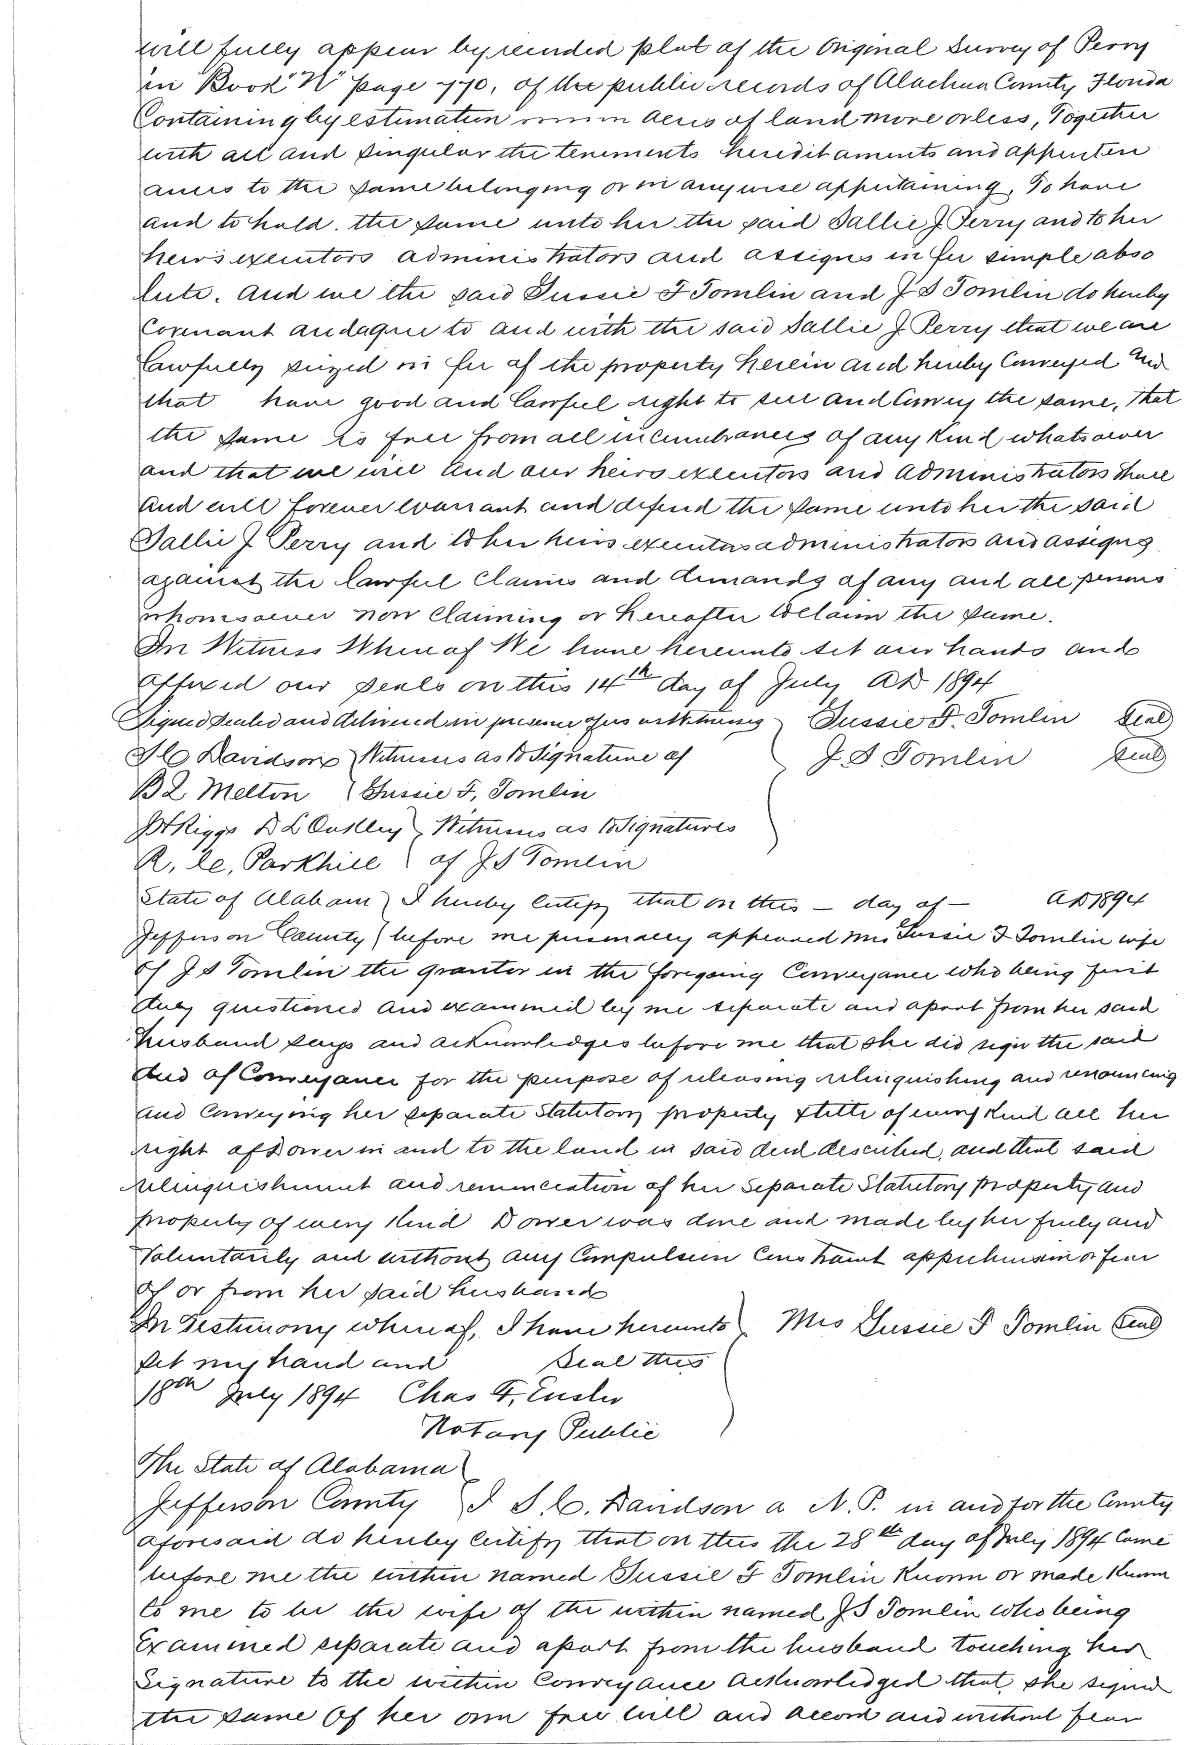 will fully appear by recorded plat of the Original Survey of Perry
in Book "N" page 770, of the public records of Alachua County Florida
Containing by estimation acres of land more or less, Together
with all and singular the tenements hereditaments and appurten
ances to the same belonging or in anywise appertaining, To have
and to hold. the same unto her the said Sallie J Perry and to her
heirs executors administrators and assigns in fee simple abso
lute. And we the said Gussie F Tomlin and J S Tomlin do hereby
Covenant and agree to and with the said Sallie J Perry that we are
lawfully seized in fee of the property herein and hereby Conveyed and
that have good and lawful right to sell and Convey the same, that
the same is free from all incumbrances of any Kind whatsoever
and that we will and our heirs executors and administrators shall
and will forever warrant and defend the same unto her the said
Sallie J Perry and to her heirs executors administrators and assigns
against the lawful claims and demands of any and all persons
whomsoever now claiming or hereafter to claim the same.
In Witness Whereof We have hereunto set our hands and
affixed our seals on this 14th day of July AD 1894
Signed sealed and delivered in presence of us as Witnesses Gussie F. Tomlin Seal
S C Davidson Witnesses as to Signature of J. S Tomlin Seal
B L Melton Gussie F, Tomlin
J H Riggs D L Oakley Witnesses as to Signatures
R, C, Parkhill of J S Tomlin
State of Alabam I hereby Certify that on this – day of – AD 1894
Jefferson County before me personally appeared Mrs Gussie F Tomlin wife
of J S Tomlin the grantor in the foregoing Conveyance who being first
duly questioned and examined by me separate and apart from her said
husband says and acknowledges before me that she did sign the said
deed of Conveyance for the purpose of releasing relinquishing and renouncing
and Conveying her separate Statutory property & title of every Kind all her
right of Dower in and to the land in said deed described, and that said
relinquishment and renunciation of her Separate Statutory property and
property of every Kind Dower was done and made by her freely and
Voluntarily and without any Compulsion Constraint apprehension or fear
of or from her said husband
In Testimony whereof, I have hereunto Mrs Gussie F Tomlin Seal
set my hand and Seal this
18th July 1894 Chas F,
Notary Public
The State of Alabama
Jefferson County I S. C. Davidson a N. P. in and for the County
aforesaid do hereby Certify that on this the 28th day of July 1894 Came
before me the within named Gussie F Tomlin Known or made Known
to me to be the wife of the within named J S Tomlin who being
Examined separate and apart from the husband touching her
Signature to the within Conveyance acknowledged that she signed
the same Of her own free will and accord and without fear